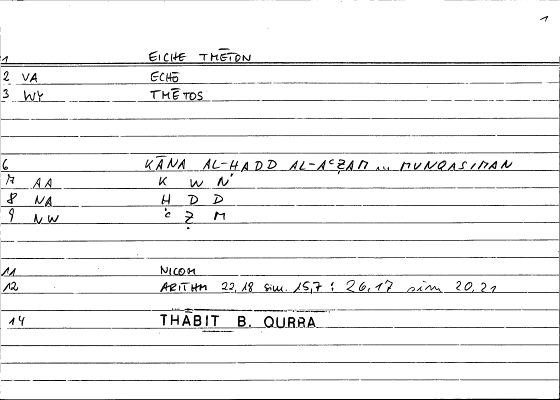 1
1 EICHE TMĒTON
2 VA ECHŌ
3 WY TMĒTOS
6 KĀNA AL-HADD AL-AʿẒAM ... MUNQASIMAN
7 AA K W N
8 NA Ḥ D D
9 NW ʿ Ẓ M
11 NICOM
12 ARITHM 22,18 sim. 15,7 : 26,17 sim 20,21
14 THĀBIT B. QURRA